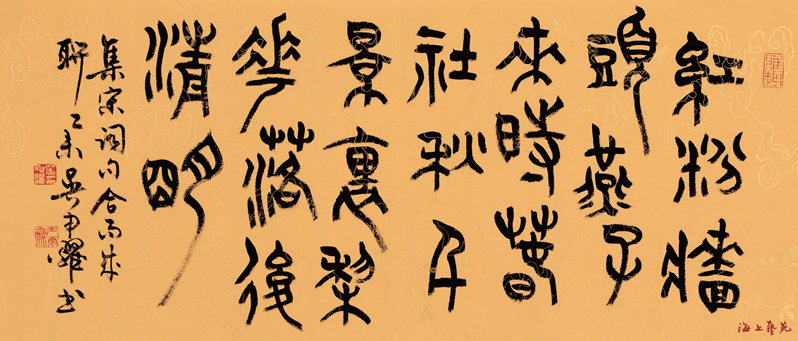 紅粉牆
頭燕子
來時春
社秋千
景裏梨
花落後
清明
集宋詞句合而成
聯乙未吳申耀書
海上藝苑